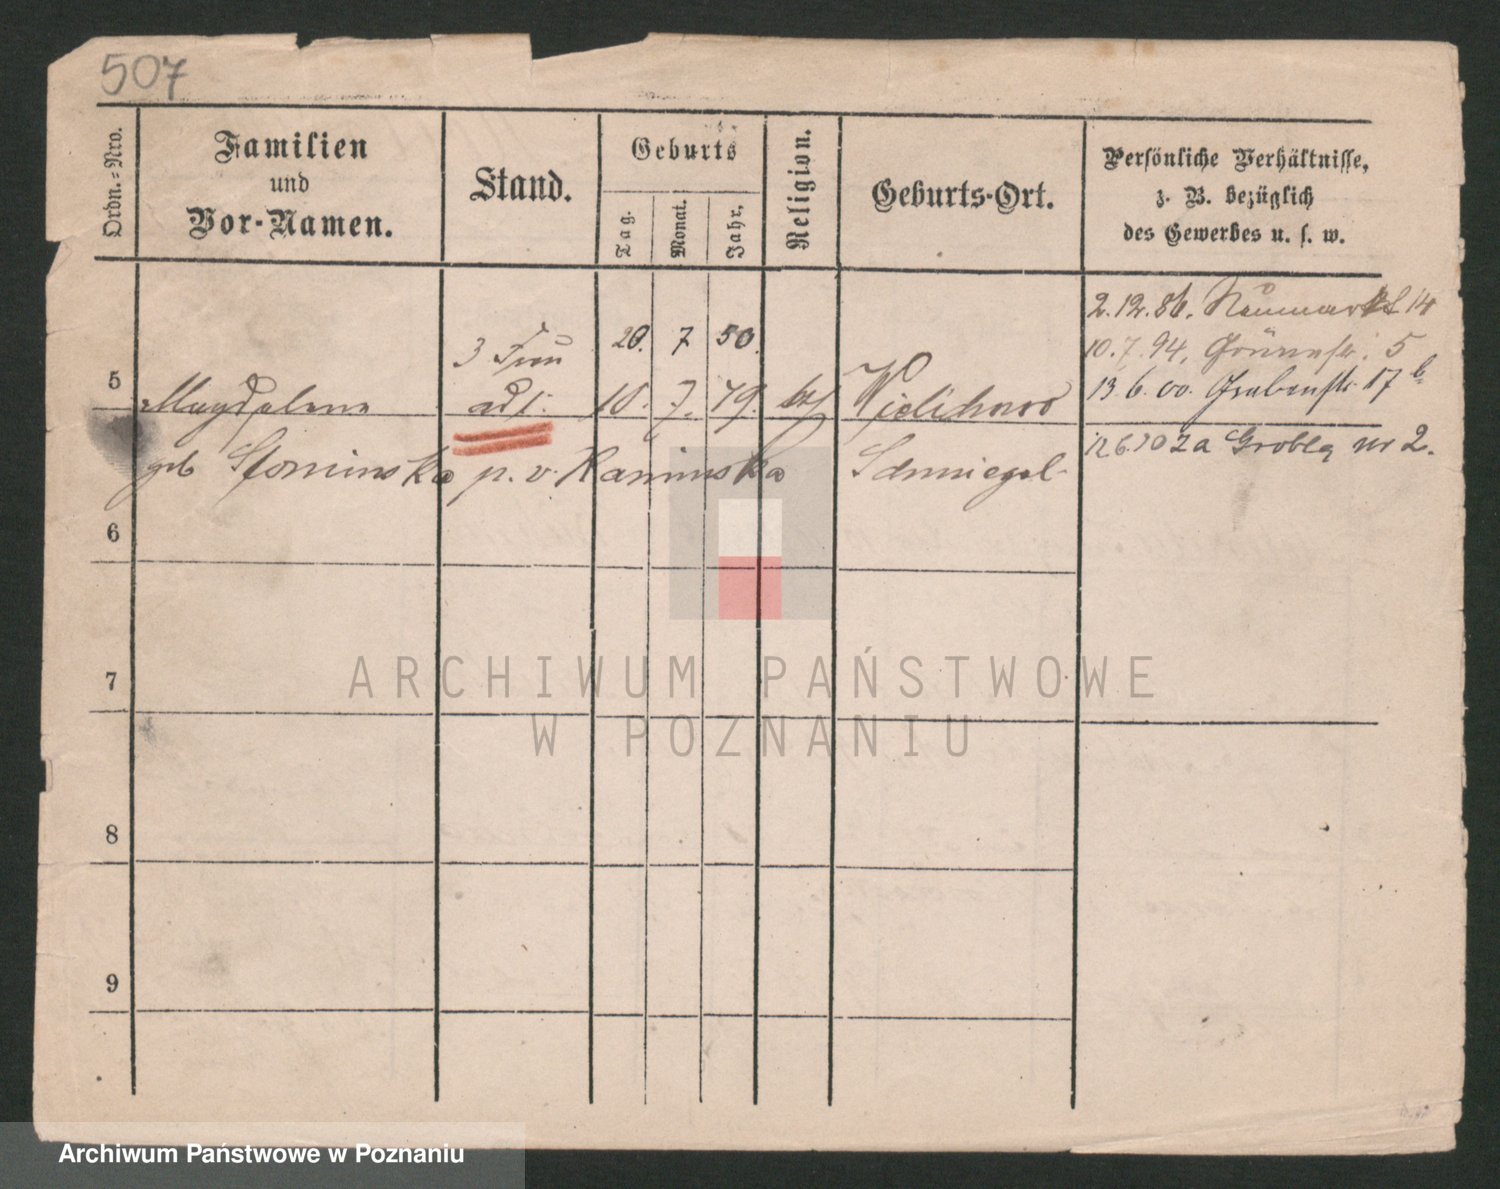 507
Ordn.-Nro.
Familien
und
Vor-Namen.
Stand.
Geburts
Tag.
Monat.
Jahr.
Religion.
Geburts-Ort.
Persönliche Verhältnisse,
z. B. bezüglich
des Gewerbes u. s. w.
2.12.86. Neumarkt 14
3 Frau 20. 7 50.
10.7.94. Grünestr. 5
5 Magdalena 10. 7. 79. Wielichowo
13.6.00. Grabenstr 17 b
geb Słominska p. v. Kaminska Schmiegel
12.6.20 za Groblą nr 2.
6
7
8
9
ARCHIWUM PAŃSTWOWE
W POZNANIU
Archiwum Państwowe w Poznaniu